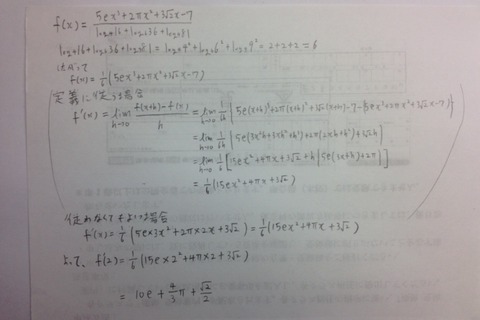 f(x) = (5ex³+2πx²+3√2x-7)/(log₄16+log₆36+log₉81)
log₄16+log₆36+log₉81 = log₄4²+log₆6²+log₉9² = 2+2+2 = 6
よって
f(x) = 1/6 (5ex³+2πx²+3√2x-7)
定義に従う場合
f'(x) = lim h→0 (f(x+h)-f(x))/h = lim h→0 1/6h {5e(x+h)³+2π(x+h)²+3√2(x+h)-7-(5ex³+2πx²+3√2x-7)}
= lim h→0 1/6h {5e(3x²h+3xh²+h³)+2π(2xh+h²)+3√2h}
= lim h→0 1/6 [15ex²+4πx+3√2+h{5e(3x+h)+2π}]
= 1/6 (15ex²+4πx+3√2)
従わなくてもよい場合
f'(x) = 1/6 (5e×3x²+2π×2x+3√2) = 1/6 (15ex²+4πx+3√2)
よって、f(2) = 1/6 (15e×2²+4π×2+3√2)
= 10e + 4/3 π + √2/2